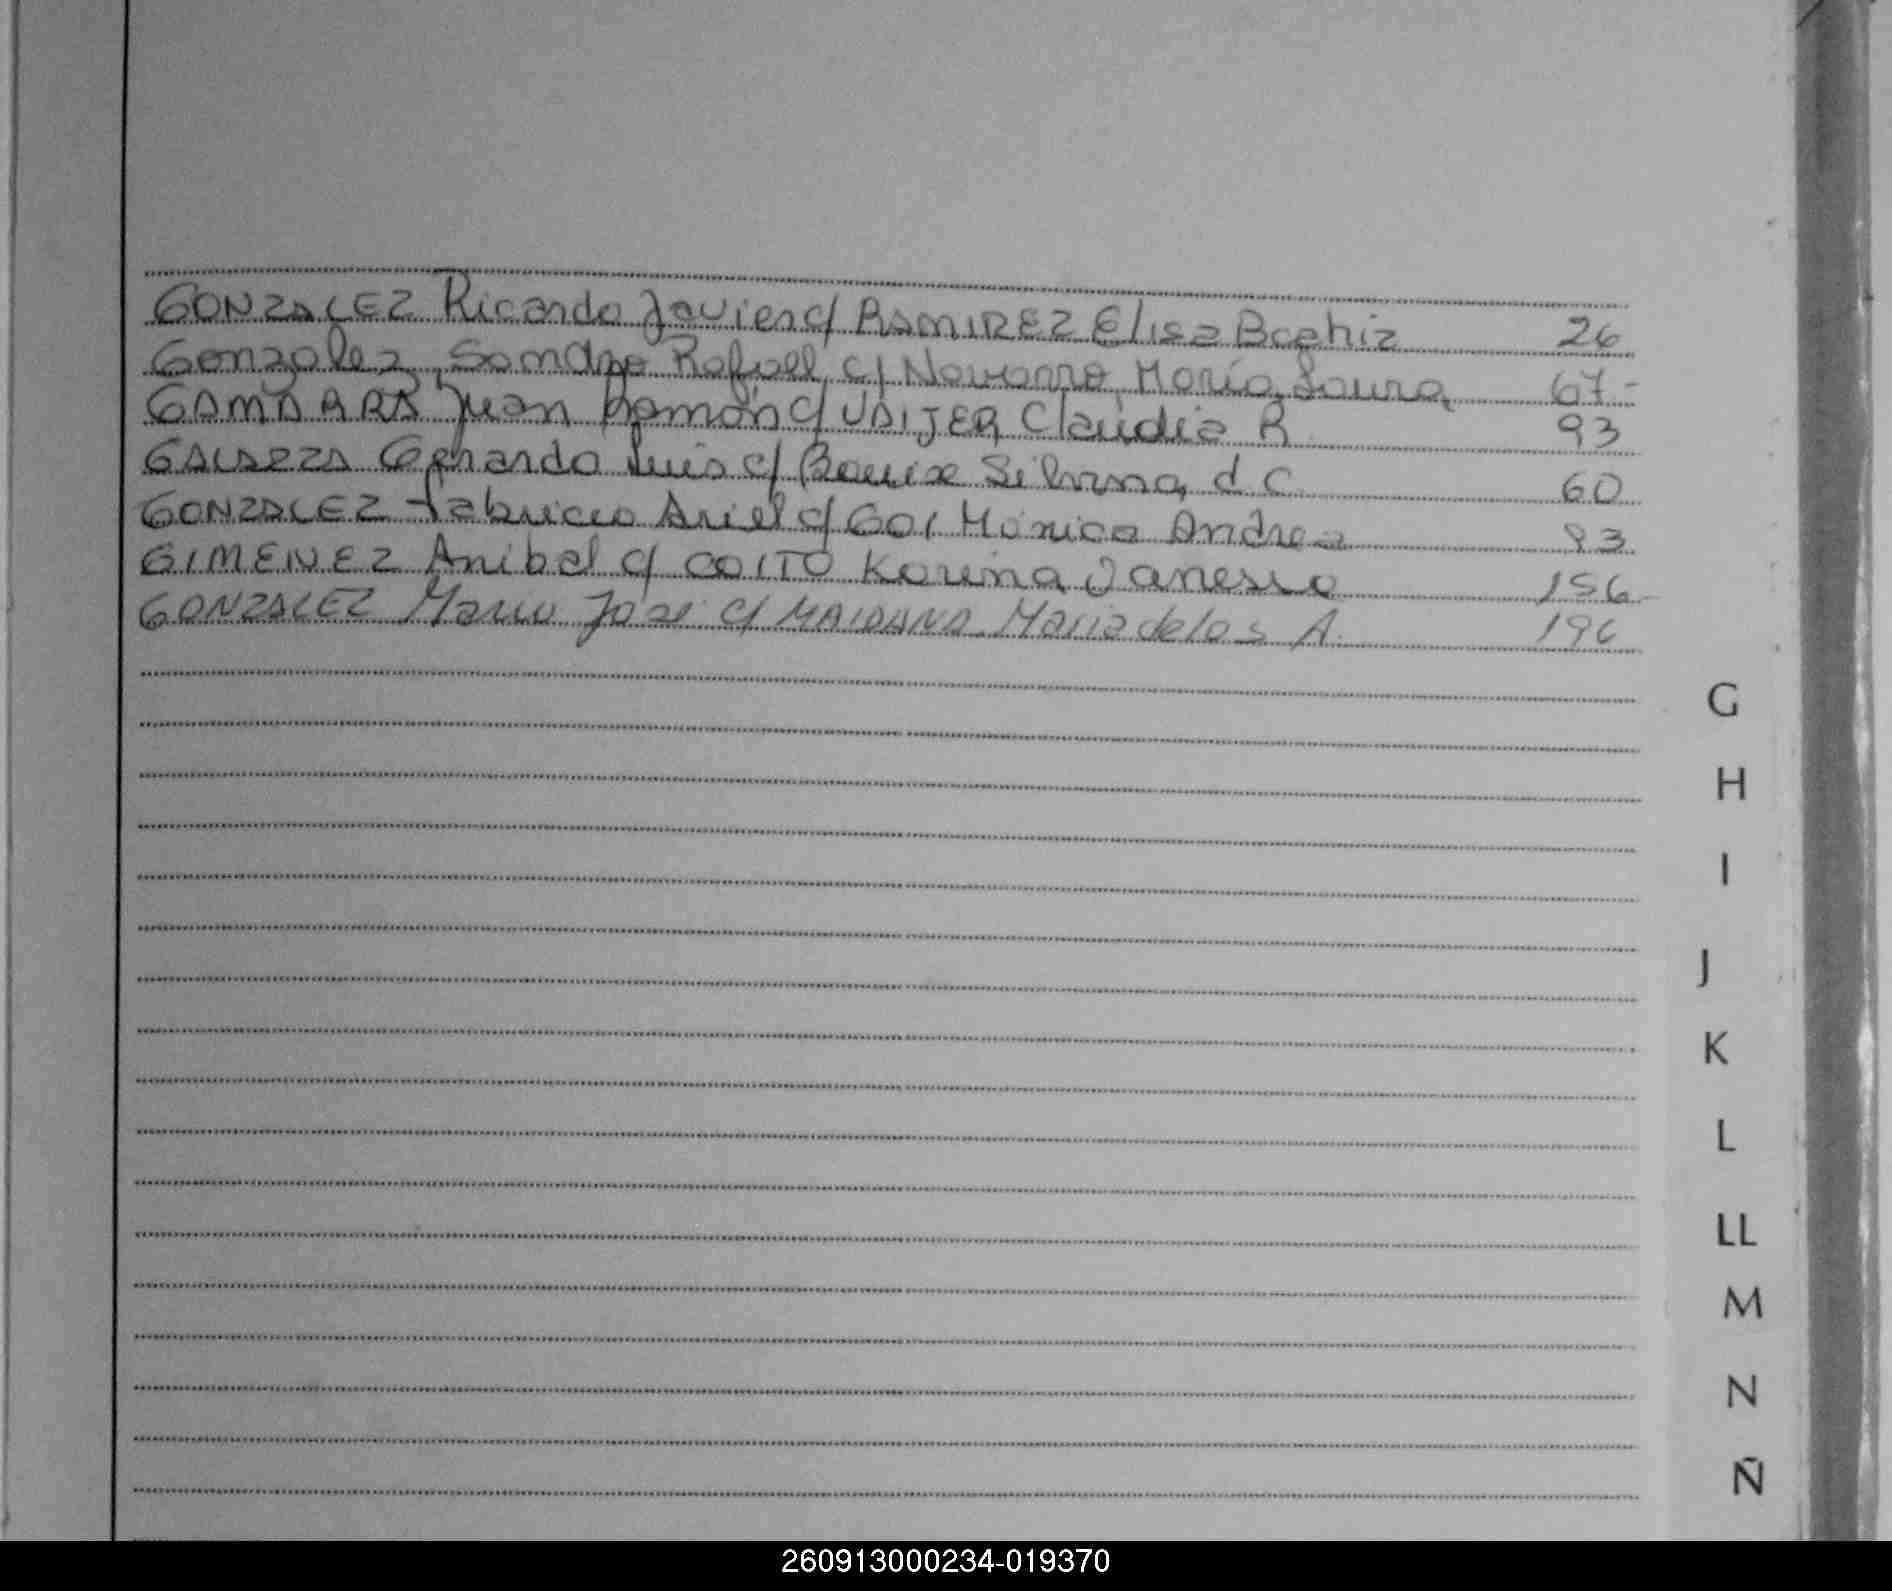 GONZALEZ Ricardo Javier c/ RAMIREZ Elisa Beatriz 26
Gonzalez Sandro Rafael c/ Navarro María Laura 67-
GAMARRA Juan Ramón c/ UBIJER Claudia R 93
Gerardo Luis c/ Silvana d C. 60
GONZALEZ Fabricio Ariel c/ GOI Mónica Andrea 83
GIMENEZ Anibal c/ COITO Karina Vanessa 156-
GONZALEZ Mario José c/ MAIDANA Maria de los A. 196
G
H
I
J
K
L
LL
M
N
Ñ
260913000234-019370